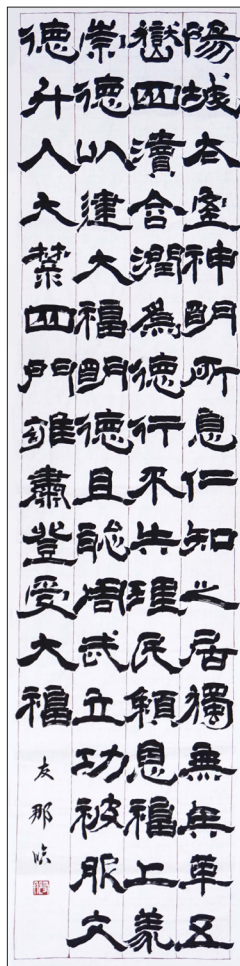 陽城太室神明所息仁知之居獨無兵革五
嶽四瀆合潤爲德行不失理民賴恩福上義
崇德以建大福明德且聰周武立功被服文
德升入大麓四門雍肅登受大福
友那臨